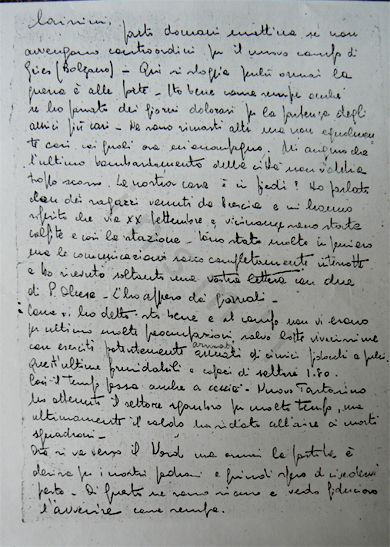 Carissimi,
parto domani mattina se non
avvengono contrordini per il nuovo campo di
Gries (Bolzano) - Qui si sloggia perché ormai la
guerra è alle porte - Sto bene come sempre anche
se ho passato dei giorni dolorosi per la partenza degli
amici più cari - Ne sono rimasti altri ma non egualmen
te cari coi quali ora mi accompagno. Mi auguro che
l'ultimo bombardamento della città non vi abbia
troppo scosso. La nostra casa è in piedi? Ho parlato
con dei ragazzi venuti da Brescia e mi hanno
riferito che via XX Settembre e vicinanze sono state
colpite e così la stazione. Sono stato molto in pensiero
ma le comunicazioni sono completamente interrotte
e ho ricevuto soltanto una vostra lettera con due
di P. - L'ho appreso dai giornali -
Come vi ho detto sto bene e al campo non vi erano
per ultimo molte preoccupazioni salvo lotte vivissime
con eserciti potentemente armati di cimici pidocchi e pulci.
Quest'ultime formidabili e capaci di saltare 1.80.
Così il tempo passa anche a caccia - Nuovo Tartarino
ho ottenuto il settore sgombro per molto tempo, ma
ultimamente il caldo ha ridato all'aria ai morti
squadroni -
Ora si va verso il Nord ma ormai la partita è
decisa per i nostri padroni e quindi spero di rivedervi
presto - Di questo ne sono sicuro e vedo fiducioso
l'avvenire come sempre.